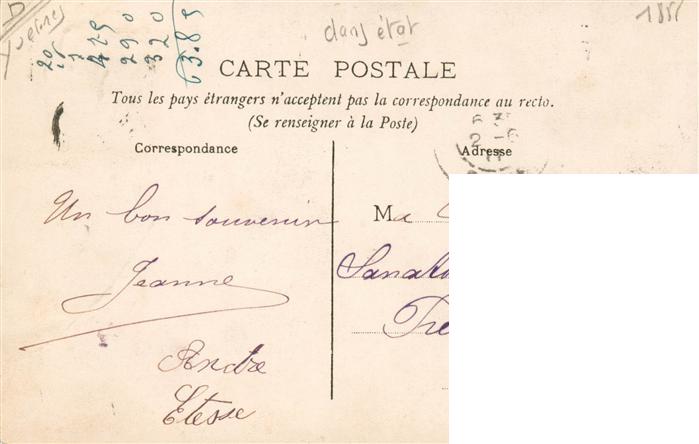 D
Yvelines
20
429
290
320
63.85
dans état
CARTE POSTALE
Tous les pays étrangers n'acceptent pas la correspondance au recto.
(Se renseigner à la Poste)
Correspondance
Adresse
Un bon souvenir
Jeanne
Andre
Etesse
Ma